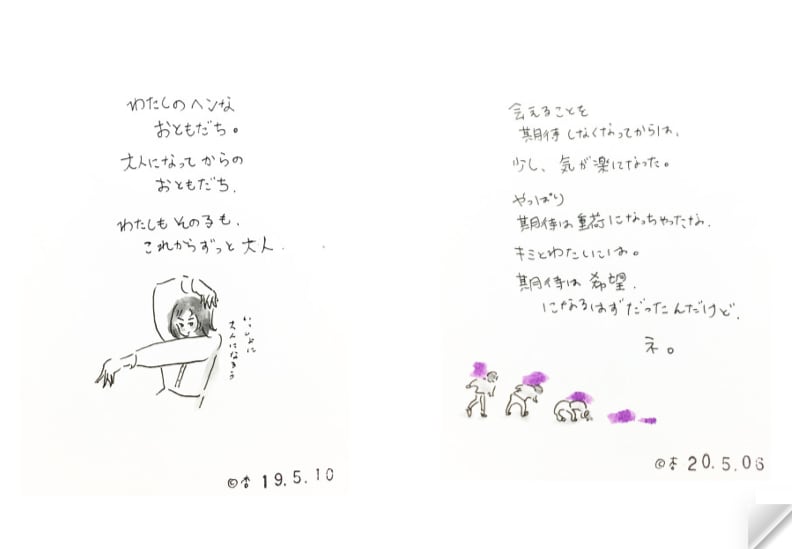 わたしのヘンな
おともだち。
大人になってからの
おともだち.
わたしもその子も.
これからずっと大人.
いっしょに
大人になろう
©杏 19.5.10
会えることを
期待しなくなってからは、
少し、気が楽になった。
やっぱり
期待は重荷になっちゃったな.
キミとわたしには。
期待は希望.
になるはずだったんだけど.
ネ。
©杏 20.5.06